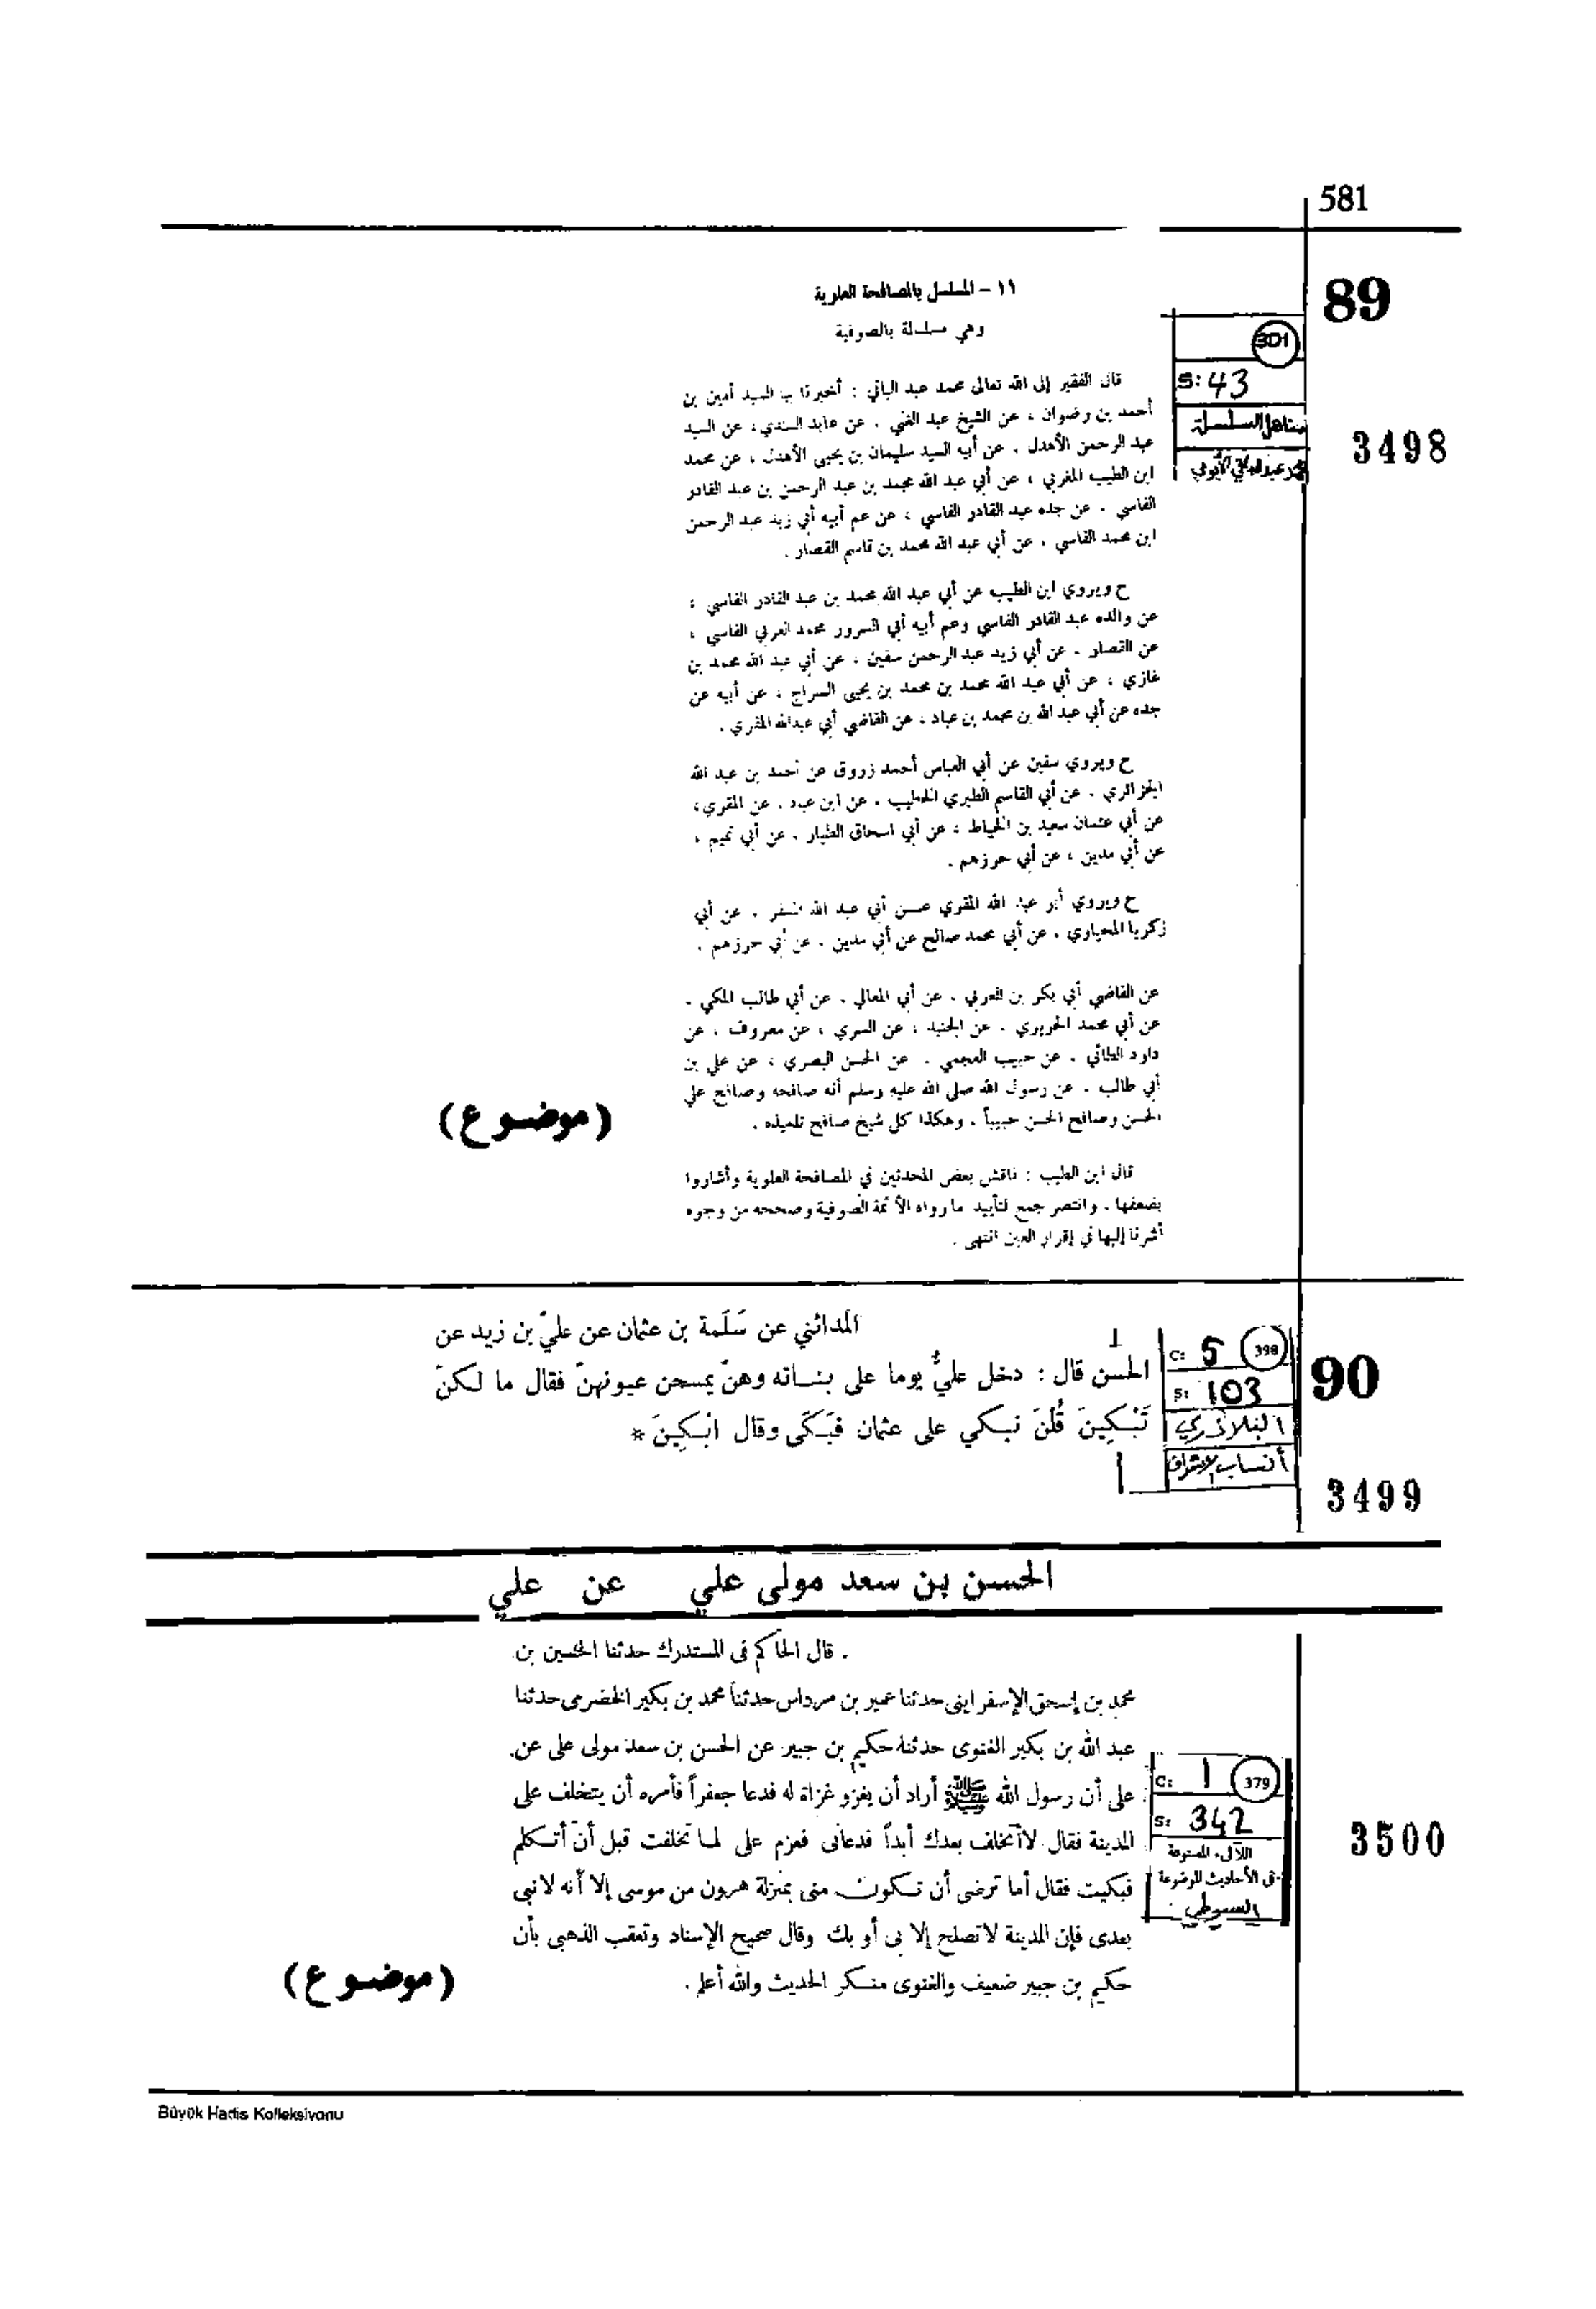 581
89
١١ – المسلسل بالمصافحة العلوية
وهي مسلسلة بالصوفية
301
S: 43
مناهل السلسلة
محمد عبد الباقي الأيوبي
3498
قال الفقير إلى الله تعالى محمد عبد الباقي : أخبرنا بها السيد أمين بن
أحمد بن رضوان ، عن الشيخ عبد الغني . عن عابد السندي ، عن السيد
عبد الرحمن الأهدل . عن أبيه السيد سليمان بن يحيى الأهدل ، عن محمد
ابن الطيب المغربي ، عن أبي عبد الله محمد بن عبد الرحمن بن عبد القادر
الفاسي . عن جده عبد القادر الفاسي ، عن عم أبيه أبي زيد عبد الرحمن
ابن محمد الفاسي . عن أبي عبد الله محمد بن قاسم القصار .
ح ويروي ابن الطيب عن أبي عبد الله محمد بن عبد القادر الفاسي ،
عن والده عبد القادر الفاسي وعم أبيه أبي السرور محمد العربي الفاسي ،
عن القصار . عن أبي زيد عبد الرحمن سقين ، عن أبي عبد الله محمد بن
غازي ، عن أبي عبد الله محمد بن محمد بن يحيى السراج ، عن أبيه عن
جده عن أبي عبد الله بن محمد بن عباد ، عن القاضي أبي عبدالله المقري .
ح ويروي سقين عن أبي العباس أحمد زروق عن أحمد بن عبد الله
الجزائري . عن أبي القاسم الطبري الخطيب . عن ابن عباد . عن المقري ،
عن أبي عثمان سعيد بن الخياط ، عن أبي اسحاق الطيار . عن أبي تميم ،
عن أبي مدين ، عن أبي حرزهم .
ح ويروي أبو عبد الله المقري عن أبي عبد الله . عن أبي
زكريا المحياوي . عن أبي محمد صالح عن أبي مدين . عن أبي حرزهم .
عن القاضي أبي بكر بن العربي . عن أبي المعالي . عن أبي طالب المكي .
عن أبي محمد الحريري . عن الجنيد ، عن السري ، عن معروف ، عن
داود الطائي . عن حبيب العجمي . عن الحسن البصري ، عن علي بن
أبي طالب . عن رسول الله صلى الله عليه وسلم أنه صافحه وصافح علي
الحسن وصافح الحسن حبيباً . وهكذا كل شيخ صافح تلميذه .
(موضوع)
قال ابن الطيب : ناقش بعض المحدثين في المصافحة العلوية وأشاروا
بضعفها . وانتصر جمع لتأييد ما رواه الأئمة الصوفية وصححه من وجوه
أشرنا إليها في إقرار العين انتهى .
90
C: 5 398
S: 103
البلاذري
أنساب الاشراف
3499
المدائني عن سَلَمة بن عثمان عن عليّ بن زيد عن
الحسن قال : دخل عليٌّ يوما على بناته وهنّ يمسحن عيونهنّ فقال ما لكنّ
تَبْكِينَ قُلْنَ نبكي على عثمان فبَكَى وقال ابْكِينَ *
الحسن بن سعد مولى علي عن علي
C: 1 379
S: 342
اللآلىء المصنوعة
فى الأحاديث الموضوعة
السيوطي
3500
. قال الحاكم فى المستدرك حدثنا الحسين بن
محمد بن إسحق الإسفراينى حدثنا عمير بن مرداس حدثنا محمد بن بكير الحضرمى حدثنا
عبد الله بن بكير الغنوى حدثنا حكيم بن جبير عن الحسن بن سعد مولى على عن
على أن رسول الله ﷺ أراد أن يغزو غزاة له فدعا جعفراً فأمره أن يتخلف على
المدينة فقال لا أتخلف بعدك أبداً فدعانى فعزم على لما تخلفت قبل أن أتكلم
فبكيت فقال أما ترضى أن تكون منى بمنزلة هرون من موسى إلا أنه لا نبى
بعدى فإن المدينة لا تصلح إلا بى أو بك وقال صحيح الإسناد وتعقب الذهبى بأن
حكيم بن جبير ضعيف والغنوى منكر الحديث والله أعلم .
(موضوع)
Büyük Hadis Kolleksiyonu